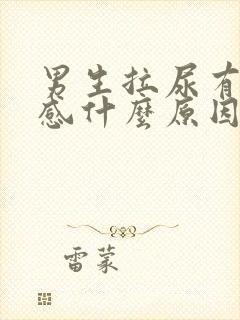 男生拉尿有
感什麼原因
雷蒙